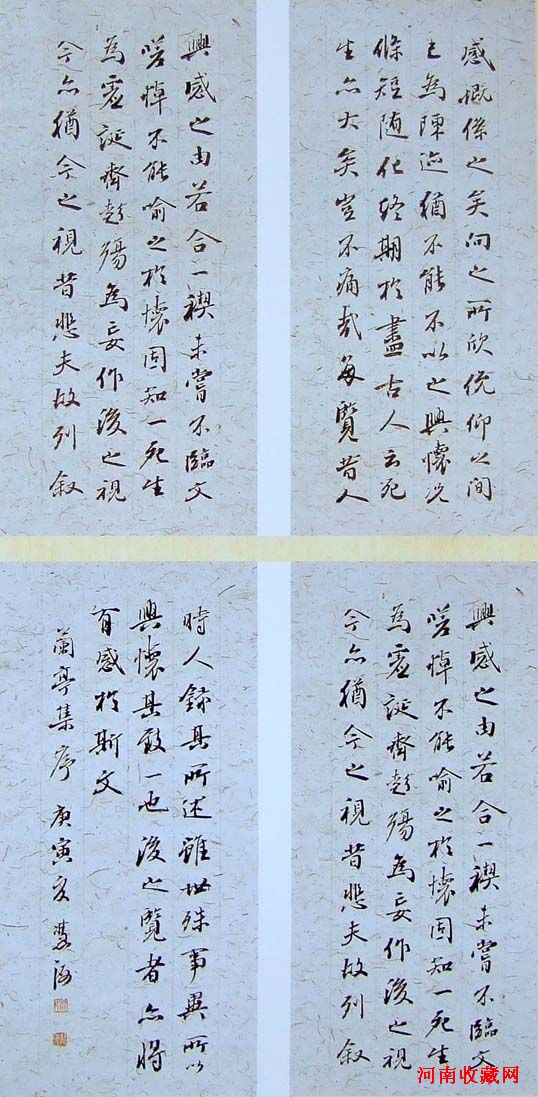 感慨係之矣向之所欣俛仰之間
已為陳迹猶不能不以之興懷况
脩短随化終期於盡古人云死
生亦大矣豈不痛哉每覽昔人
興感之由若合一禊未嘗不臨文
嗟悼不能喻之於懷固知一死生
為虛誕齊彭殤為妄作後之視
今亦猶今之視昔悲夫故列叙
興感之由若合一禊未嘗不臨文
嗟悼不能喻之於懷固知一死生
為虛誕齊彭殤為妄作後之視
今亦猶今之視昔悲夫故列叙
時人錄其所述雖世殊事異所以
興懷其致一也後之覽者亦將
有感於斯文
蘭亭集序 庚寅夏
河南收藏网